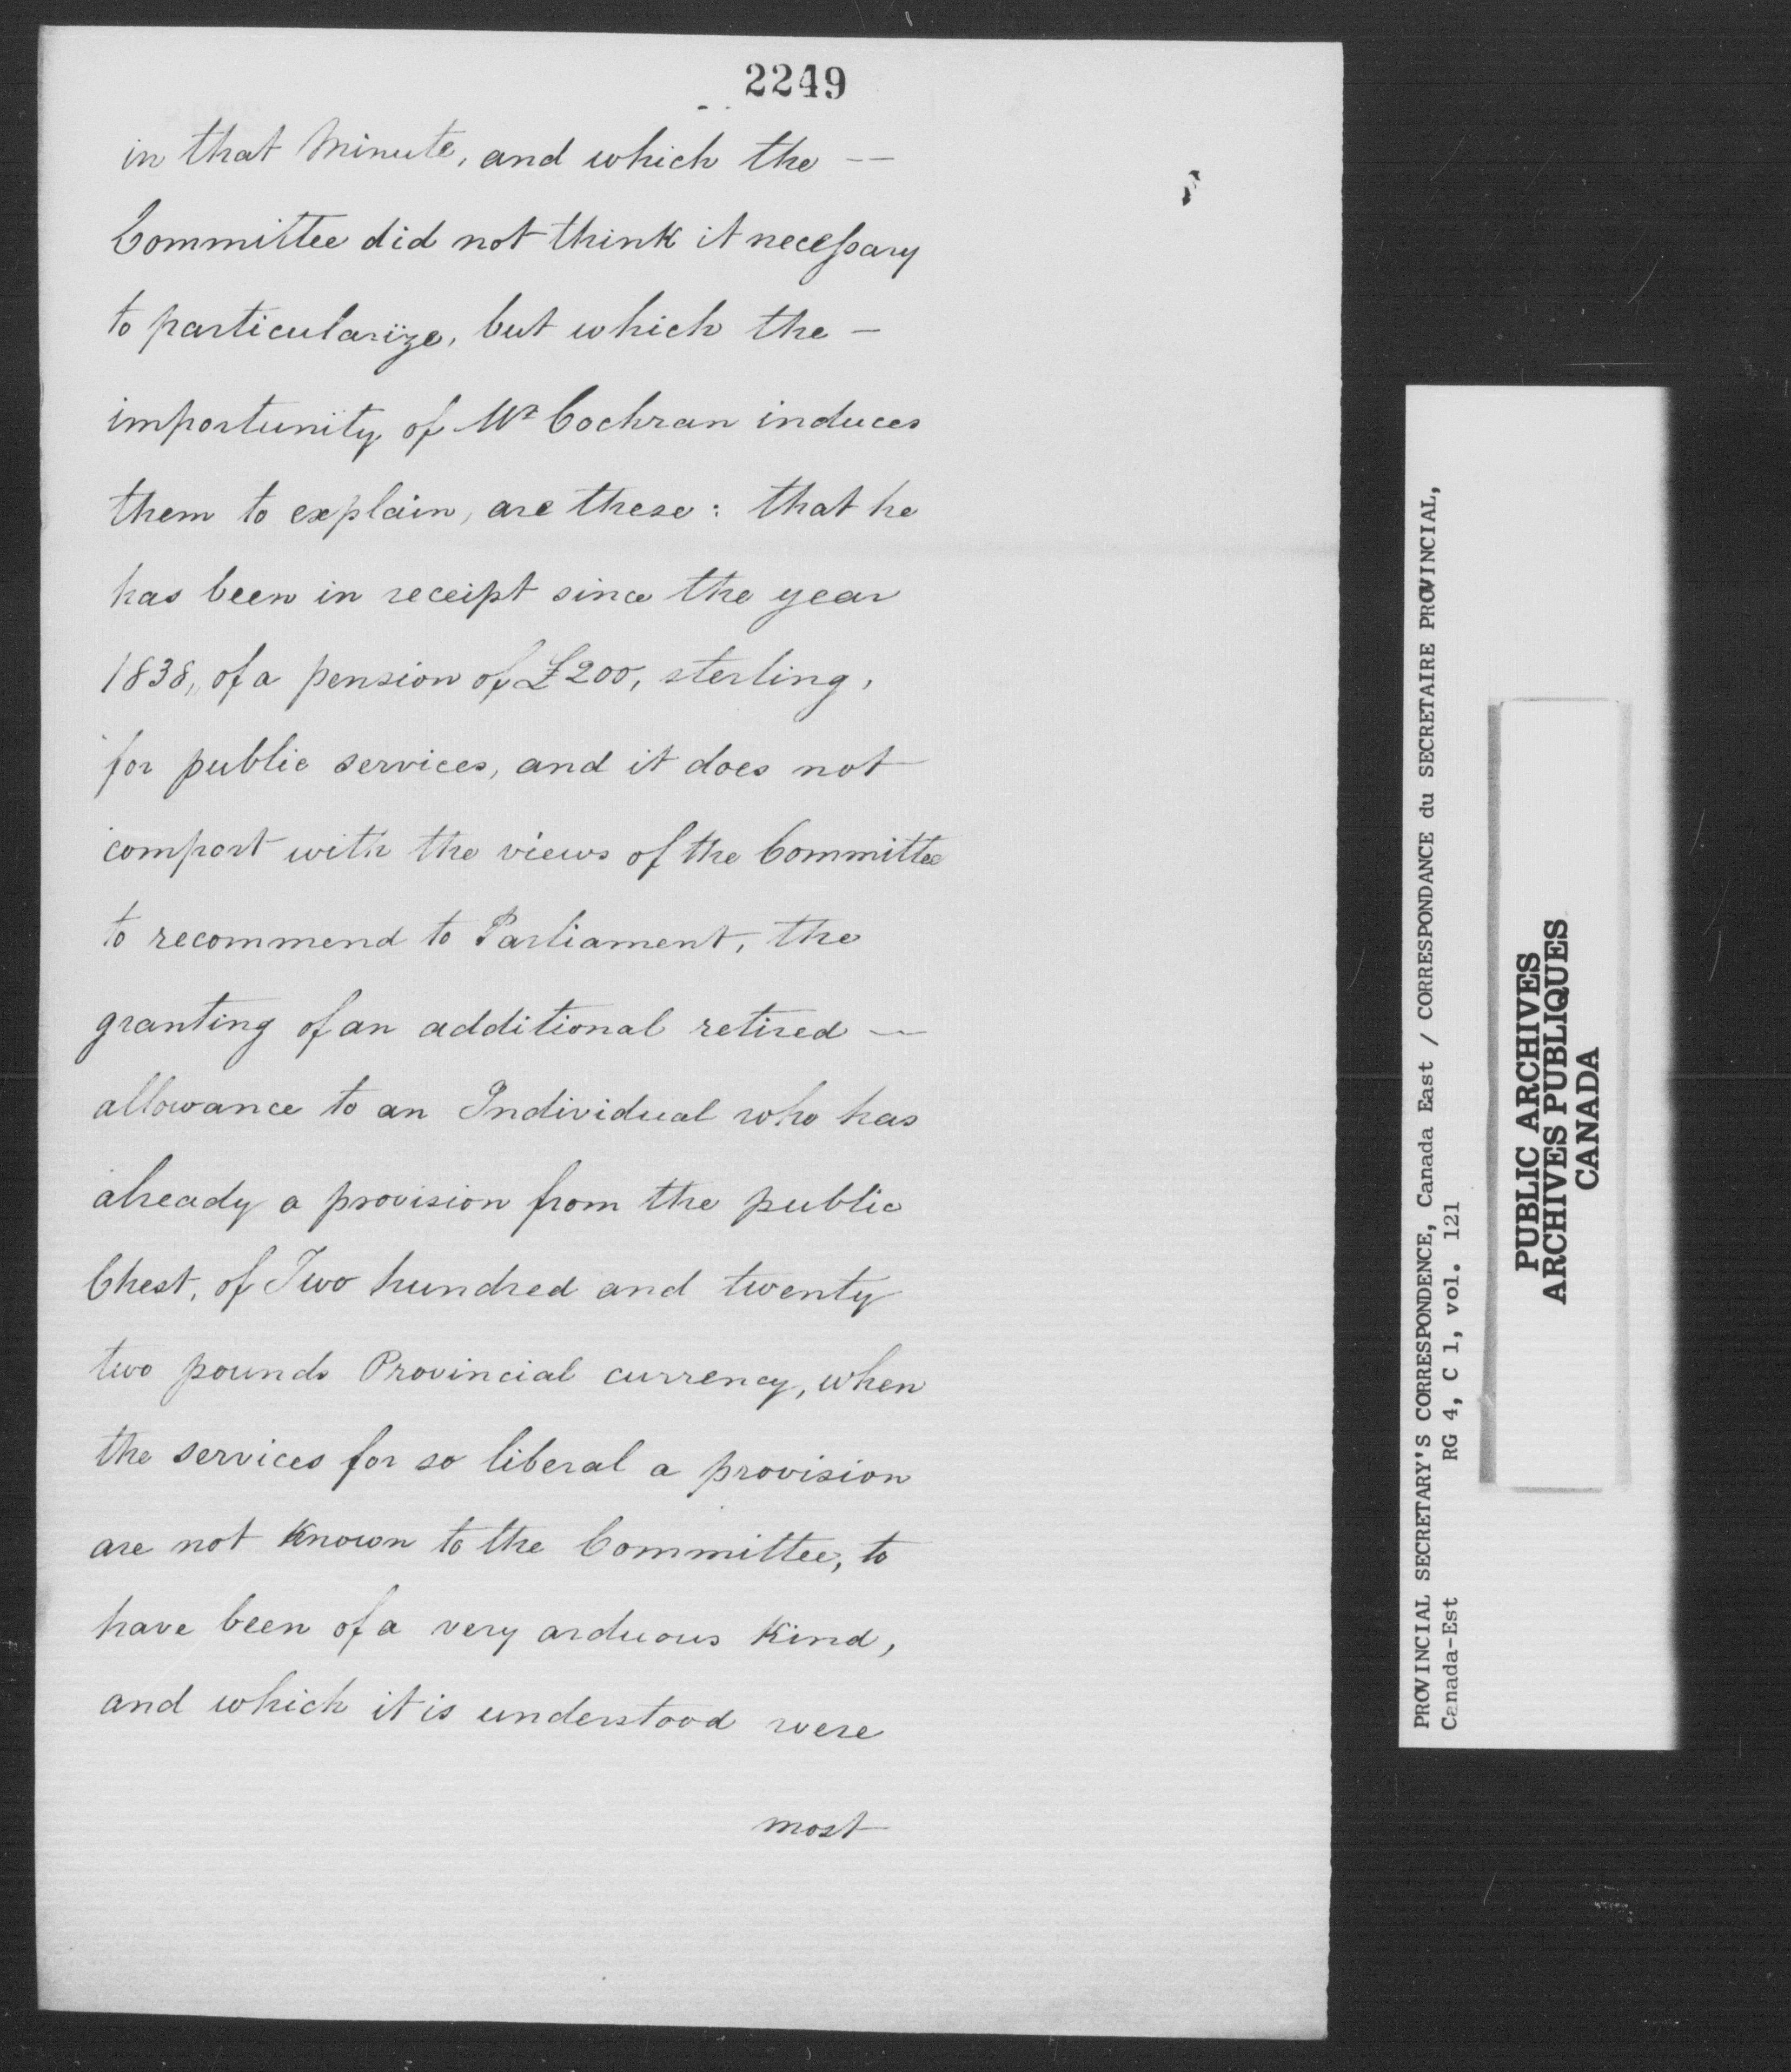 2249
in that Minute, and which the --
Committee did not think it necessary
to particularize, but which the -
importunity of Mr Cochran induces
them to explain, are these: that he
has been in receipt since the year
1838, of a pension of £200, sterling,
for public services, and it does not
comport with the views of the Committee
to recommend to Parliament, the
granting of an additional retired -
allowance to an Individual who has
already a provision from the public
Chest, of Two hundred and twenty
two pounds Provincial currency, when
the services for so liberal a provision
are not Known to the Committee, to
have been of a very arduous Kind,
and which it is understood were
most
PROVINCIAL SECRETARY'S CORRESPONDENCE, Canada East / CORRESPONDANCE du SECRETAIRE PROVINCIAL,
Canada-Est RG 4, C 1, vol. 121
PUBLIC ARCHIVES
ARCHIVES PUBLIQUES
CANADA